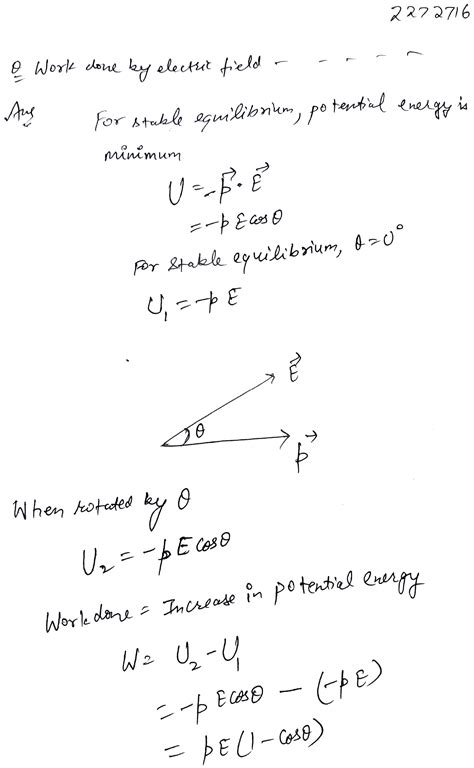 2272716
Q Work done by electric field - - - - -
Ans For stable equilibrium, potential energy is
minimum
U = -p⃗ · E⃗
= -pE cosθ
For stable equilibrium, θ = 0°
U₁ = -pE
E⃗
θ
p⃗
When rotated by θ
U₂ = -pE cosθ
Work done = Increase in potential energy
W = U₂ - U₁
= -pE cosθ - (-pE)
= pE(1 - cosθ)